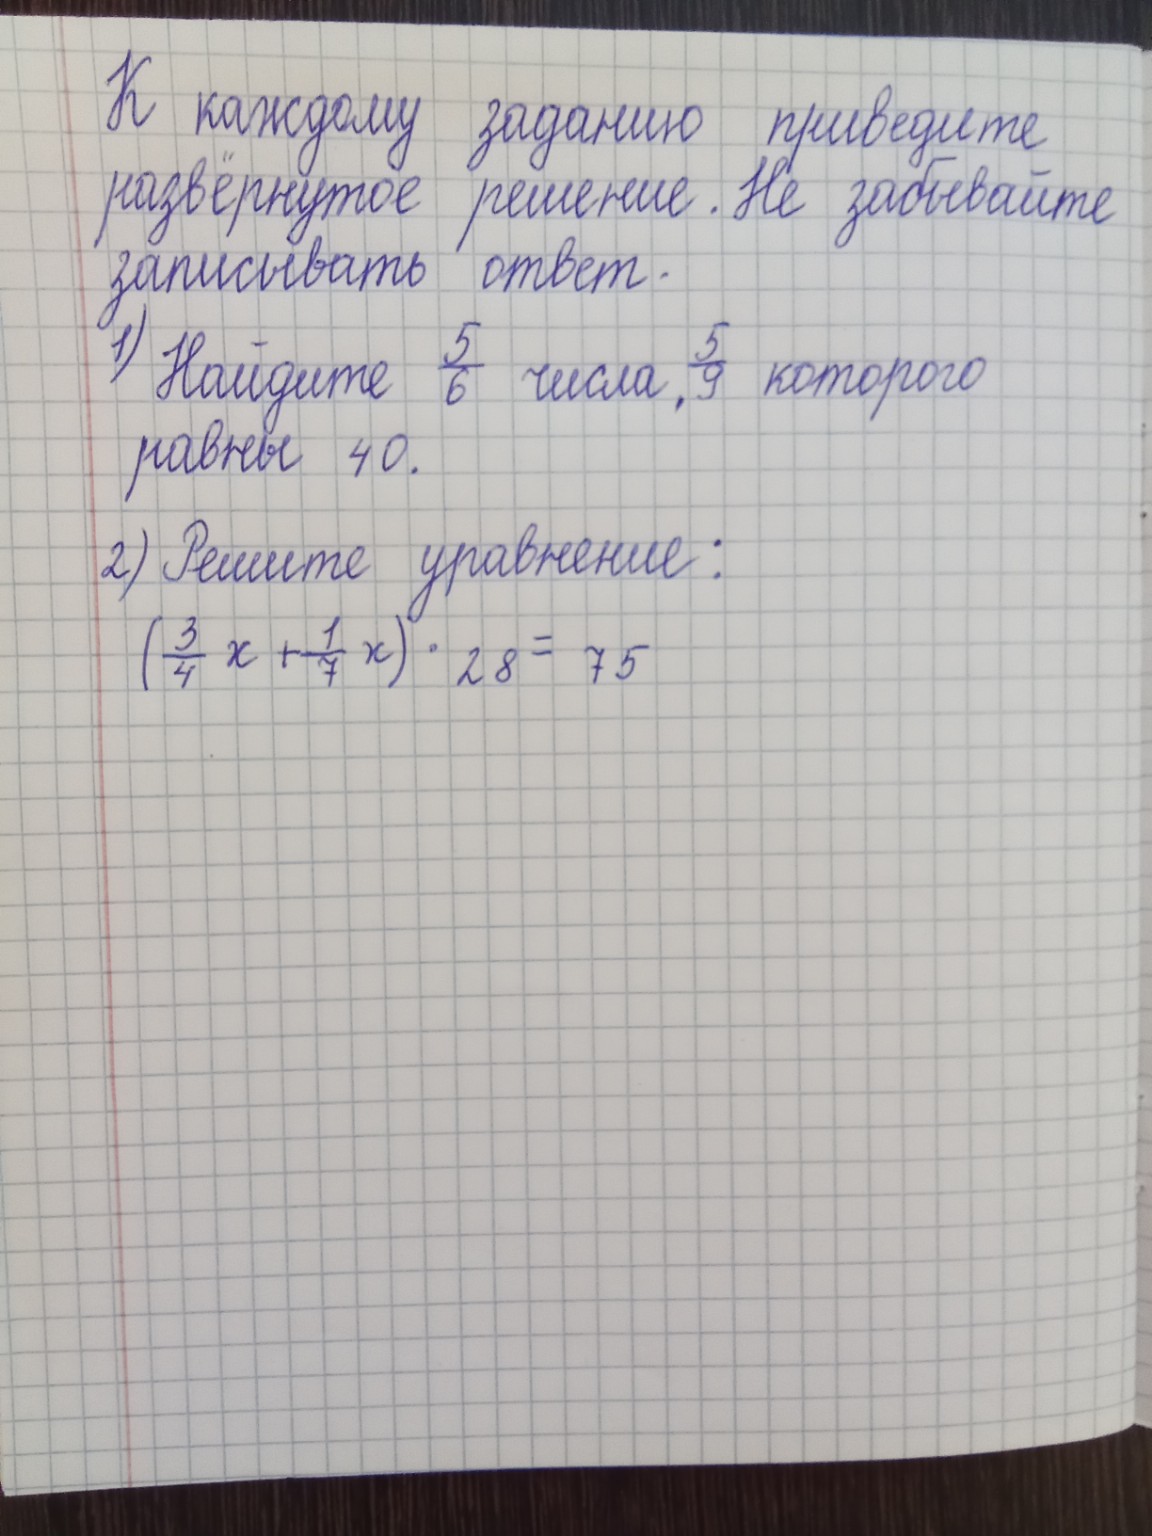 К каждому заданию приведите
развёрнутое решение. Не забывайте
записывать ответ.
1) Найдите 5/6 числа, 5/9 которого
равны 40.
2) Решите уравнение:
(3/4 x + 1/7 x) · 28 = 75